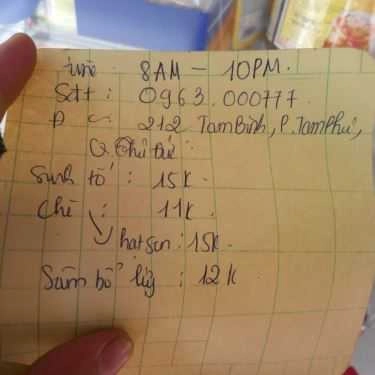 time : 8AM - 10PM.
Sđt : 0963.000777.
Đ c : 212 Tam Bình, P. Tam Phú,
Q. Thủ Đức
Sinh tố : 15K.
Chè : 11K.
hạt sen : 15K.
Sâm bổ lượng : 12K